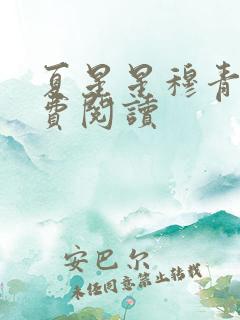 夏星星穆青
費閱讀
安巴尔
未经同意禁止转载